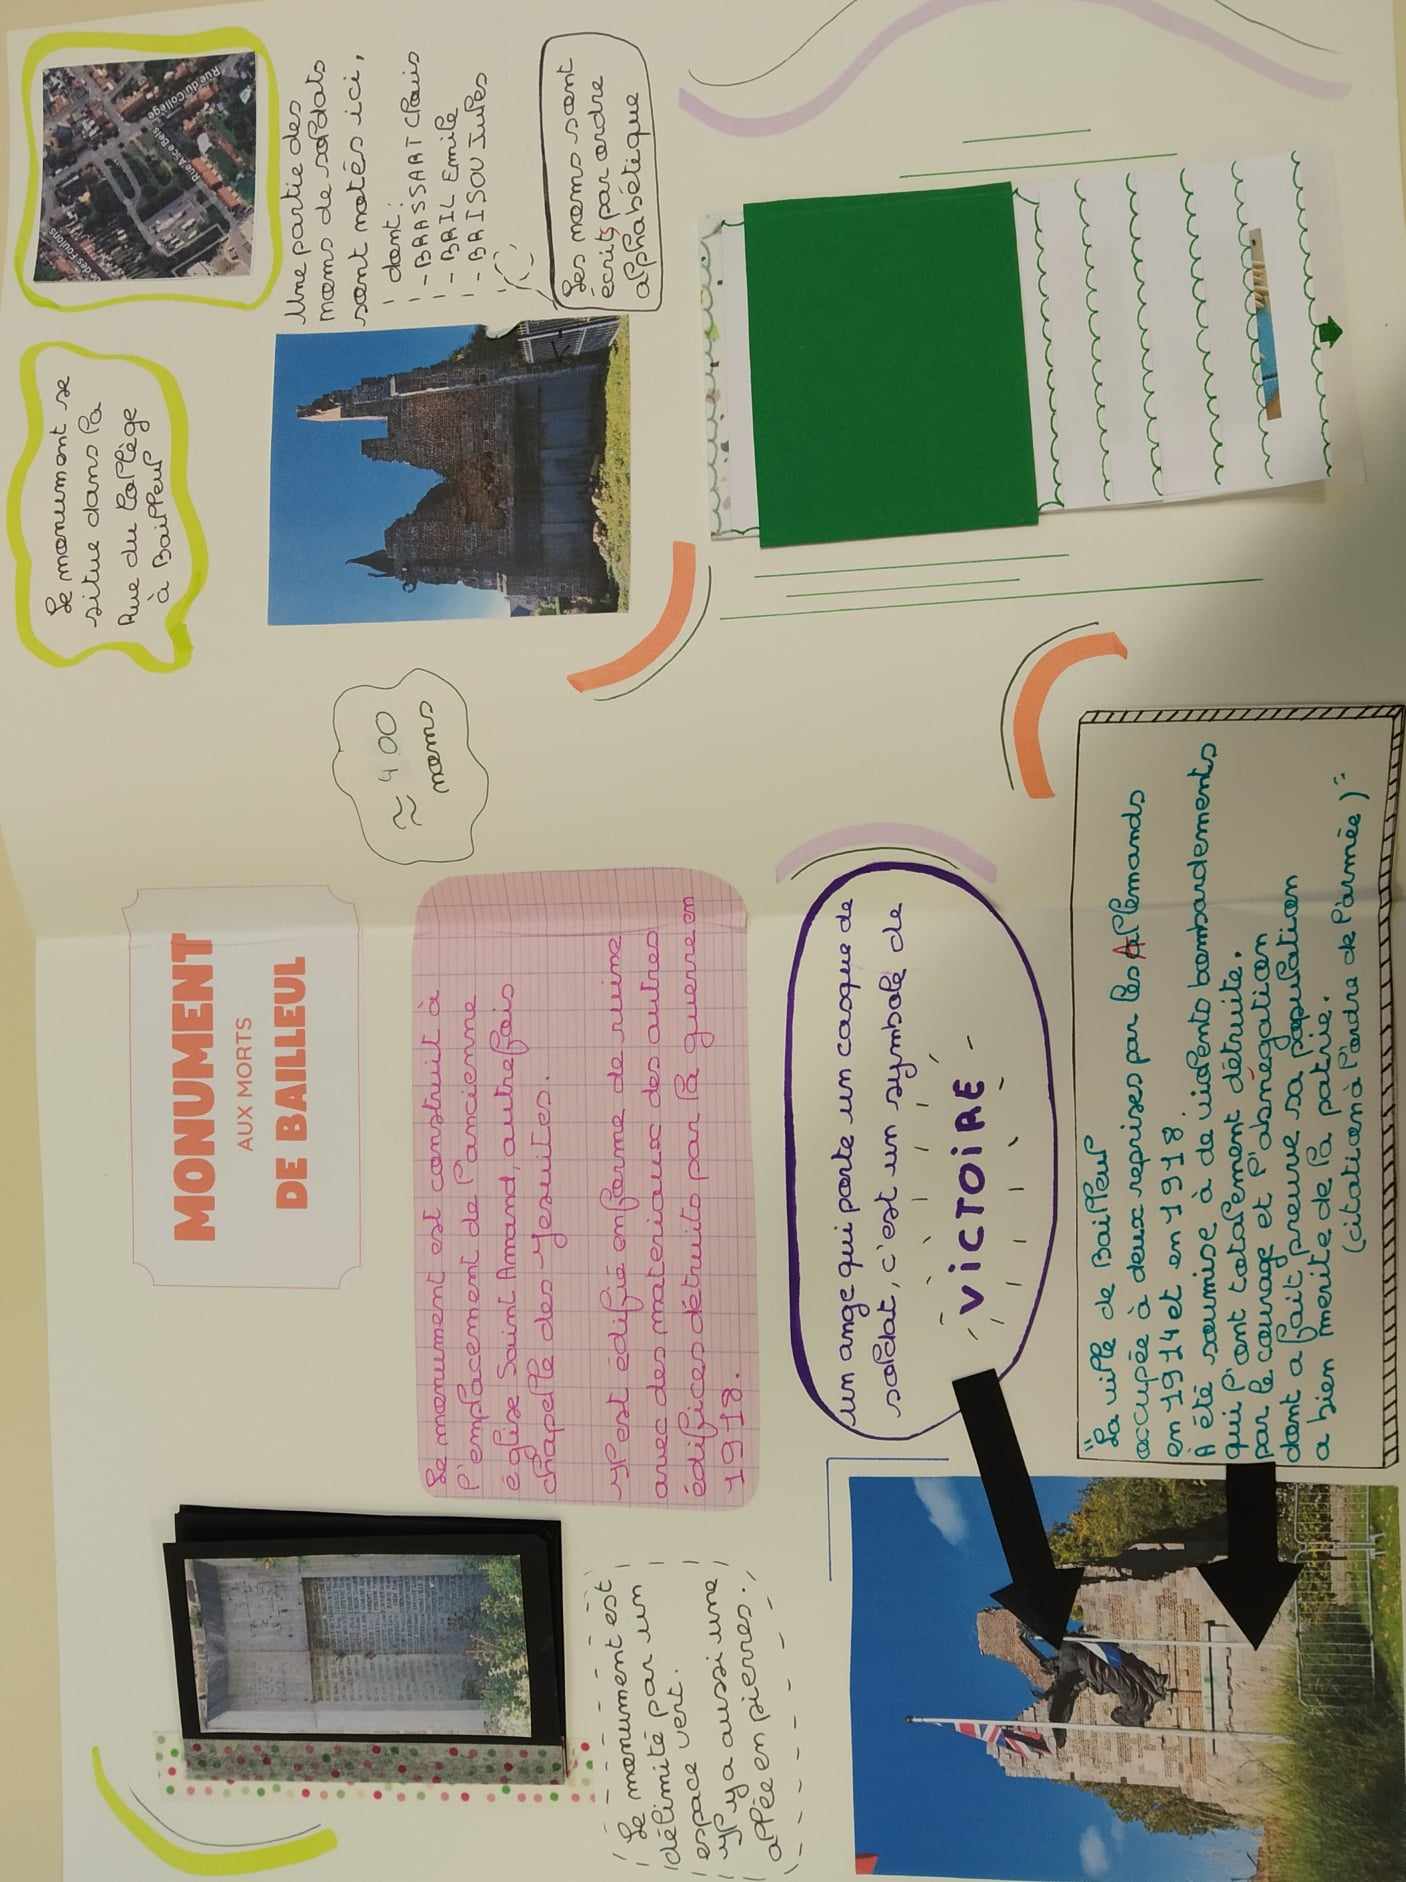 MONUMENT
AUX MORTS
DE BAILLEUL
Le monument est construit à
l'emplacement de l'ancienne
église Saint Amand, autrefois
chapelle des Jesuites.
Il est édifié en forme de ruine
avec des materiaux des autres
édifices détruits par la guerre en
1918.
Le monument est
délimité par un
espace vert.
Il y a aussi une
allée en pierres.
un ange qui porte un casque de
soldat, c'est un symbole de
VICTOIRE
"La ville de Bailleul
occupée à deux reprises par les Allemands
en 1914 et en 1918.
A été soumise à de violents bombardements
qui l'ont totalement détruite.
par le courage et l'abnégation
dont a fait preuve sa population
a bien mérité de la patrie.
(citation à l'ordre de l'armée)"
≈ 400
noms
Le monument se
situe dans la
Rue du Collège
à Bailleul
Rue du Collège
Rue Alice Bels
des Foulons
Une partie des
noms de soldats
sont notés ici,
dont :
- BRASSART Clovis
- BRIL Emile
- BRISOU Jules
Les noms sont
écrits par ordre
alphabétique